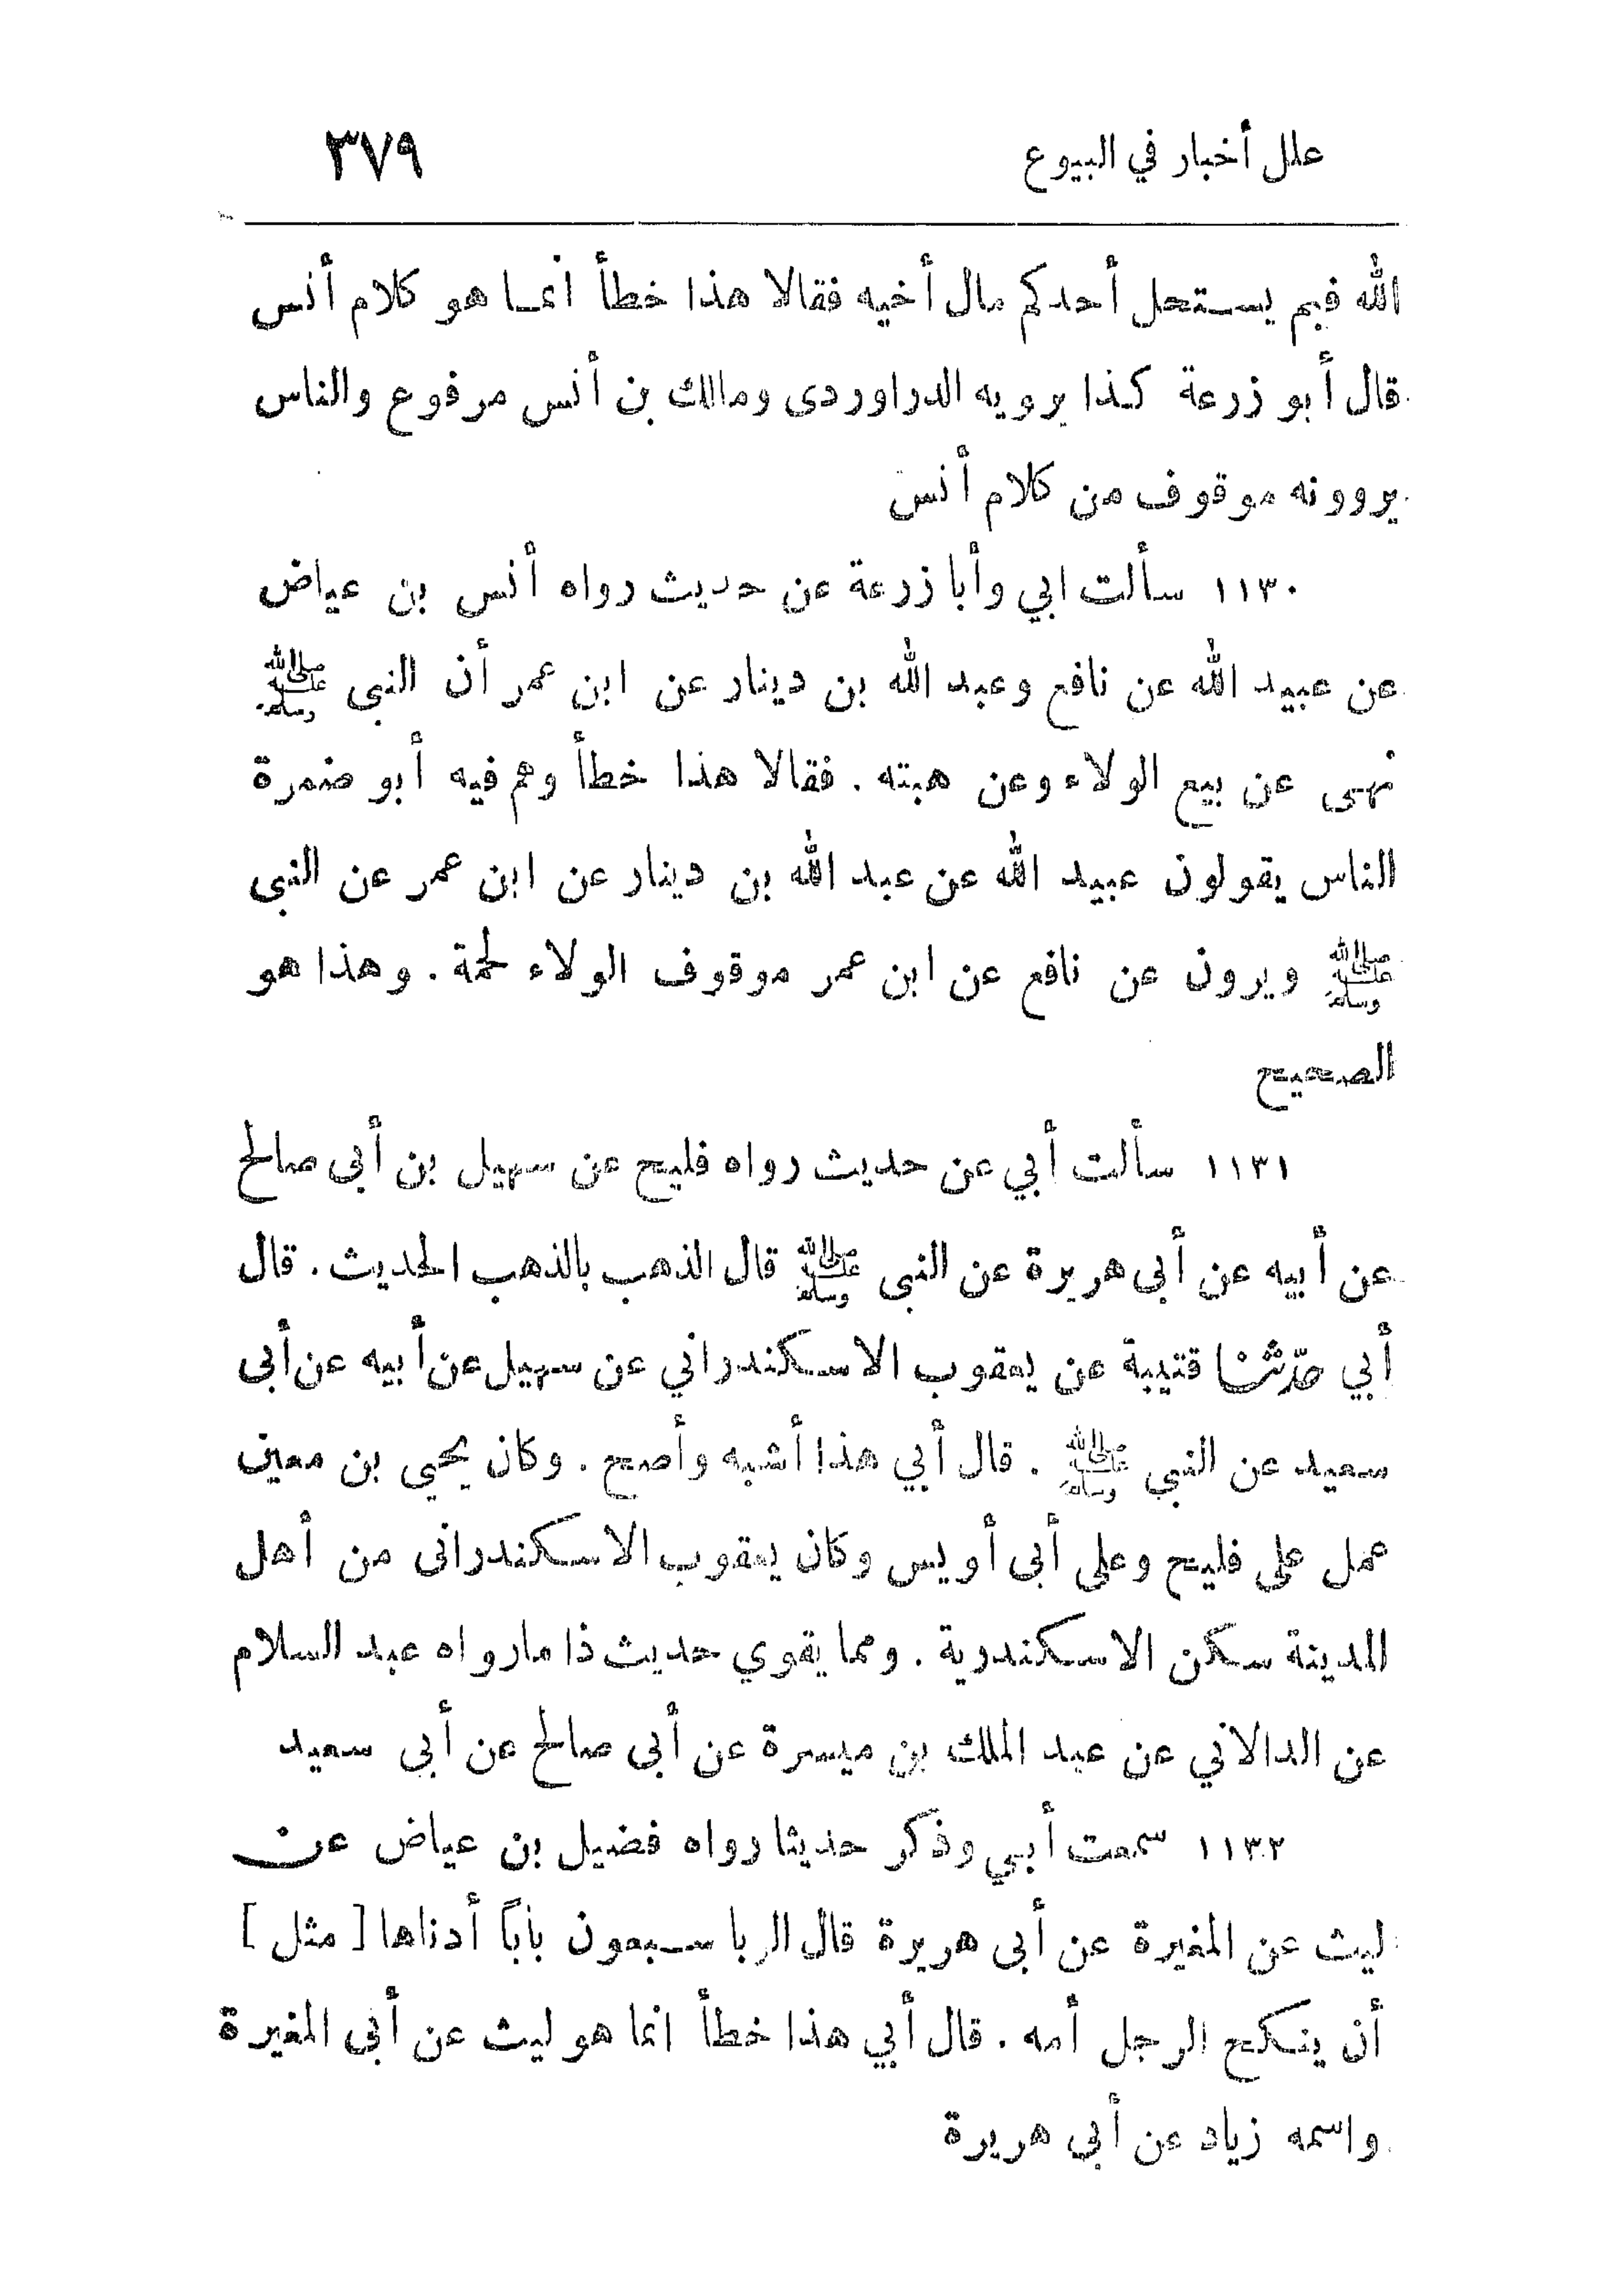 علل أخبار في البيوع ٣٧٩
الله فبم يستحل أحدكم مال أخيه فقالا هذا خطأ انما هو كلام أنس
قال أبو زرعة كذا يرويه الدراوردى ومالك بن أنس مرفوع والناس
يروونه موقوف من كلام أنس
١١٣٠ سألت ابي وأبا زرعة عن حديث رواه أنس بن عياض
عن عبيد الله عن نافع وعبد الله بن دينار عن ابن عمر أن النبى ﷺ
نهى عن بيع الولاء وعن هبته . فقالا هذا خطأ وهم فيه أبو ضمرة
الناس يقولون عبيد الله عن عبد الله بن دينار عن ابن عمر عن النبى
ﷺ ويرون عن نافع عن ابن عمر موقوف الولاء لحمة . وهذا هو
الصحيح
١١٣١ سألت أبي عن حديث رواه فليح عن سهيل بن أبى صالح
عن أبيه عن أبى هريرة عن النبى ﷺ قال الذهب بالذهب الحديث . قال
أبي حدّثنا قتيبة عن يعقوب الاسكندراني عن سهيل عن أبيه عن أبى
سعيد عن النبي ﷺ . قال أبي هذا أشبه وأصح . وكان يحيي بن معين
عمل على فليح وعلى أبى أويس وكان يعقوب الاسكندرانى من أهل
المدينة سكن الاسكندرية . ومما يقوي حديث ذا مارواه عبد السلام
عن الدالاني عن عبد الملك بن ميسرة عن أبى صالح عن أبي سعيد
١١٣٢ سمعت أبي وذكر حديثا رواه فضيل بن عياض عن
ليث عن المغيرة عن أبى هريرة قال الربا سبعون باباً أدناها [ مثل ]
أن ينكح الرجل أمه . قال أبي هذا خطأ انما هو ليث عن أبى المغيرة
واسمه زياد عن أبي هريرة